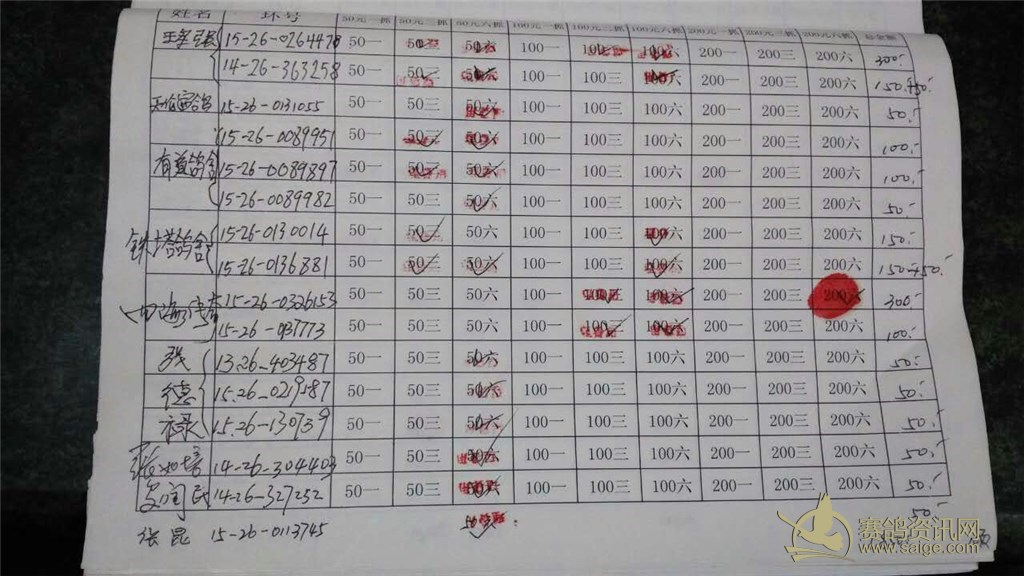 姓名 环号 50元一栋 50元三栋 50元六栋 100元一栋 100元三栋 100元六栋 200元一栋 200元三栋 200元六栋 总金额
15-26-0264478 50一 50三 50六 100一 100三 100六 200一 200三 200六 300.-
14-26-363258 50一 50三 50六 100一 100三 100六 200一 200三 200六 150+50.-
15-26-0131055 50一 50三 50六 100一 100三 100六 200一 200三 200六 50.-
15-26-0089951 50一 50三 50六 100一 100三 100六 200一 200三 200六 100.-
有益鸽舍 15-26-0089897 50一 50三 50六 100一 100三 100六 200一 200三 200六 100.-
15-26-0089982 50一 50三 50六 100一 100三 100六 200一 200三 200六 50.-
铁塔鸽舍 15-26-0130014 50一 50三 50六 100一 100三 100六 200一 200三 200六 150.-
15-26-0136881 50一 50三 50六 100一 100三 100六 200一 200三 200六 150+50.-
15-26-0326153 50一 50三 50六 100一 100三 100六 200一 200三 200六 300.-
50一 50三 50六 100一 100三 100六 200一 200三 200六 100.-
张 13-26-403487 50一 50三 50六 100一 100三 100六 200一 200三 200六 50.-
德 15-26-0219587 50一 50三 50六 100一 100三 100六 200一 200三 200六 50.-
禄 15-26-130739 50一 50三 50六 100一 100三 100六 200一 200三 200六 50.-
14-26-304403 50一 50三 50六 100一 100三 100六 200一 200三 200六 50.-
14-26-327252 50一 50三 50六 100一 100三 100六 200一 200三 200六 50.-
张昆 15-26-0113745 50.-
赛鸽资讯网
www.saige.com